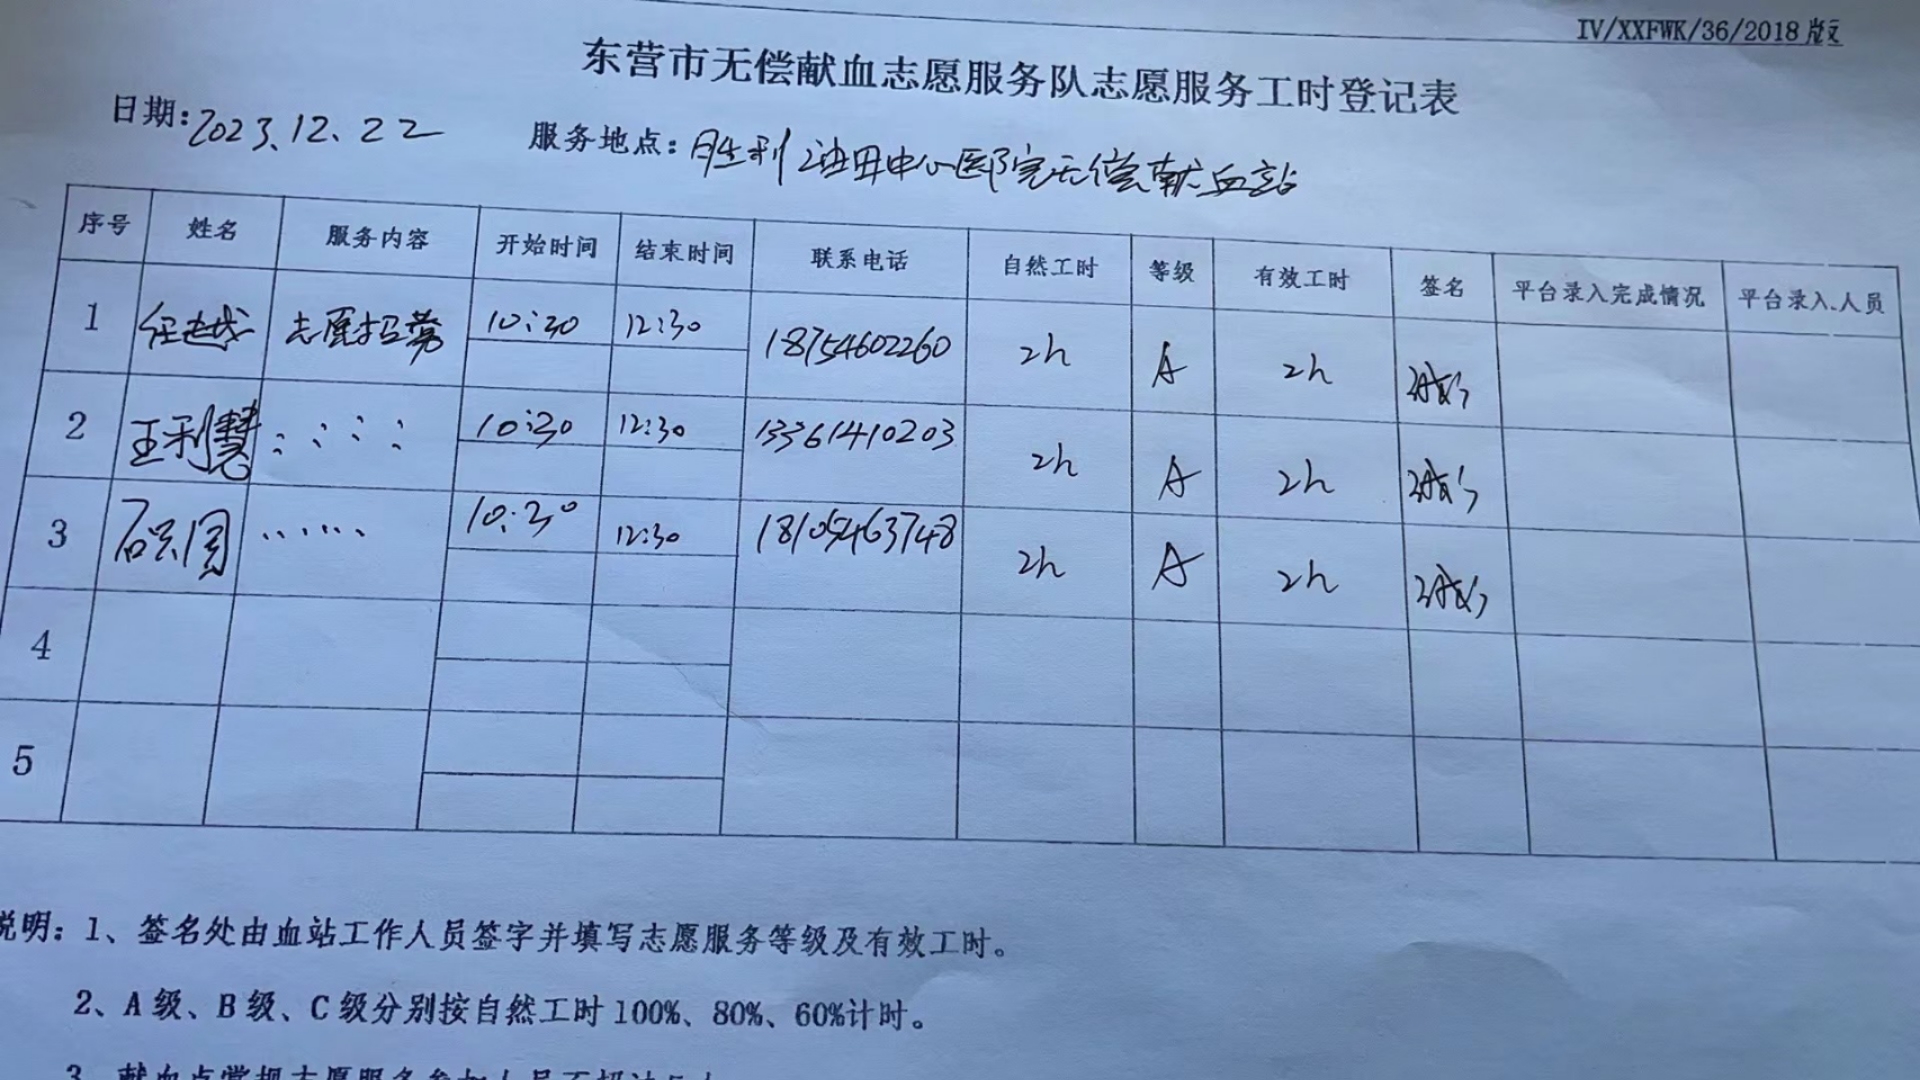 IV/XXFWK/36/2018版
东营市无偿献血志愿服务队志愿服务工时登记表
日期:2023.12.22 服务地点:胜利油田中心医院无偿献血站
序号 姓名 服务内容 开始时间 结束时间 联系电话 自然工时 等级 有效工时 签名 平台录入完成情况 平台录入人员
1 任越 志愿招募 10:30 12:30 18754602260 2h A 2h
2 王利慧 :::: 10:30 12:30 13361410203 2h A 2h
3 10:30 12:30 18105463748 2h A 2h
4
5
说明:1、签名处由血站工作人员签字并填写志愿服务等级及有效工时。
2、A级、B级、C级分别按自然工时100%、80%、60%计时。